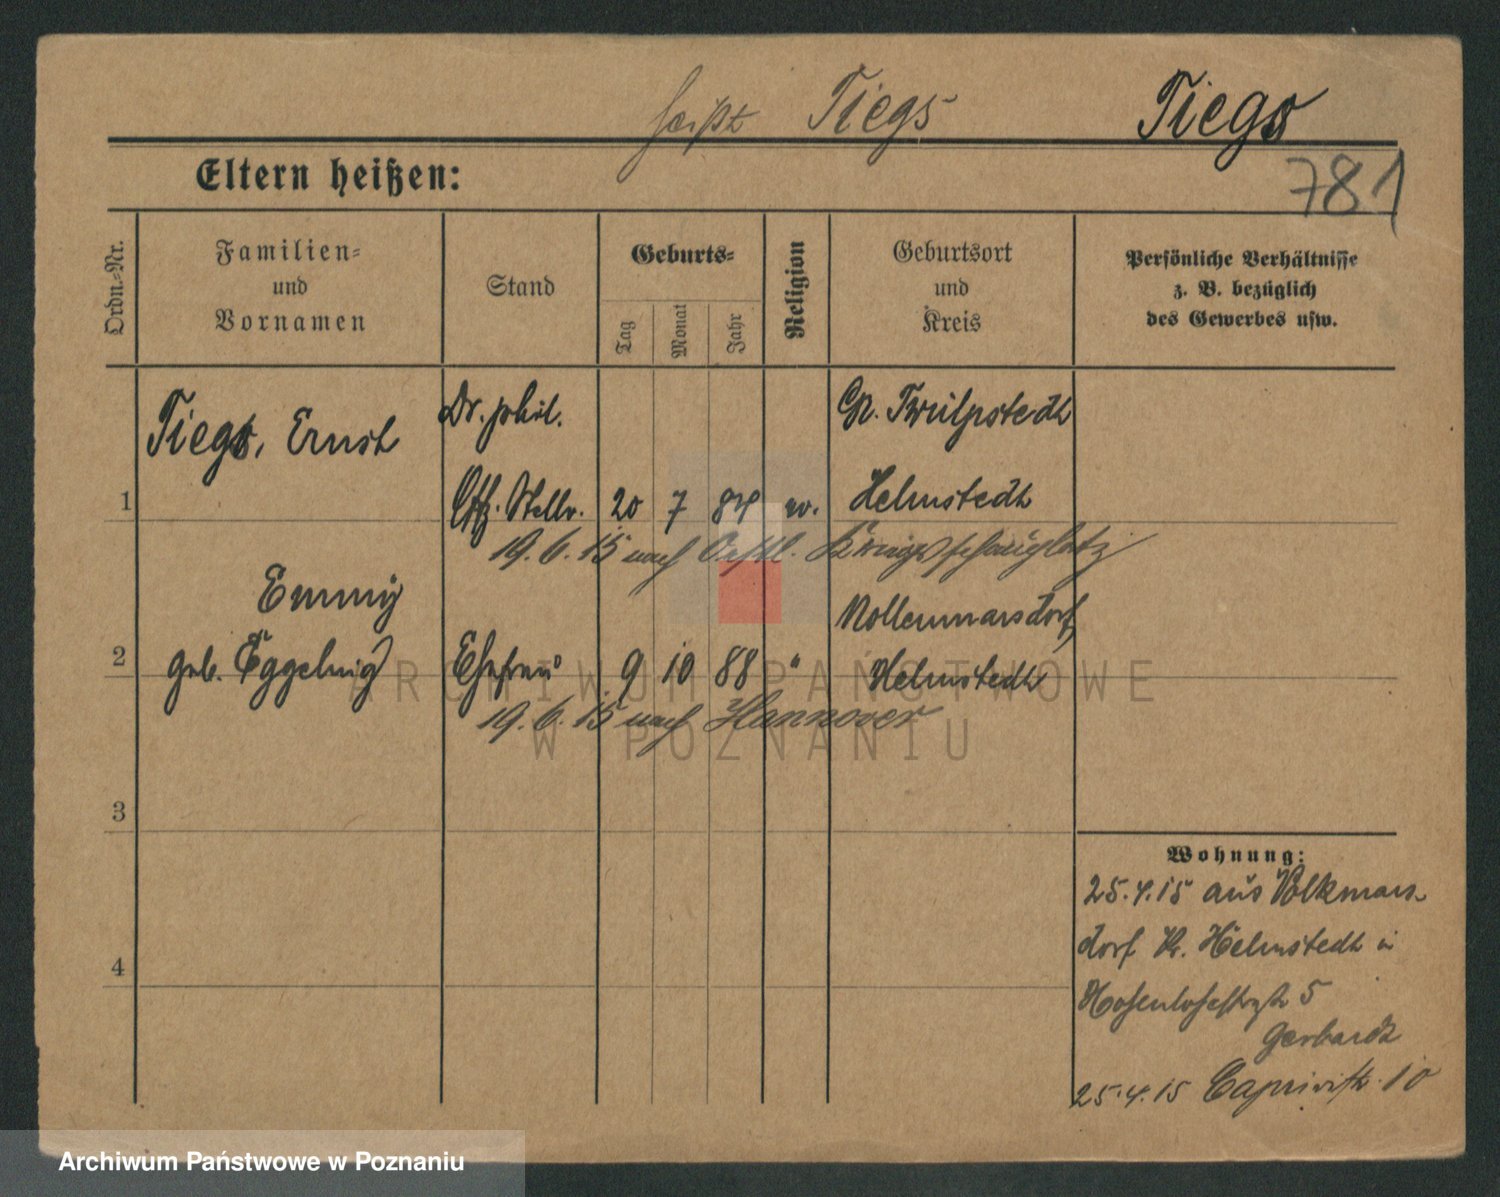 heißt Tiegs Tiegs
781
Eltern heißen:
Ordn.-Nr.
Familien-
und
Vornamen
Stand
Geburts-
Tag
Monat
Jahr
Religion
Geburtsort
und
Kreis
Persönliche Verhältnisse
z. B. bezüglich
des Gewerbes usw.
Tiegs, Ernst
Dr. phil.
Gr. Twülpstedt
1
Off. Stellv. 20 7 84 ev. Helmstedt
19.6.15 nach Östl. Kriegsschauplatz
Emmy
2
geb. Eggeling
Ehefrau 9 10 88 "
Helmstedt
19.6.15 nach Hannover
3
4
Wohnung:
25.4.15 aus Volkmars-
dorf Kr. Helmstedt in
Hohenlohestr. 5
Gerhardt
25.4.15 Caprivistr. 10
ARCHIWUM PAŃSTWOWE
W POZNANIU
Archiwum Państwowe w Poznaniu